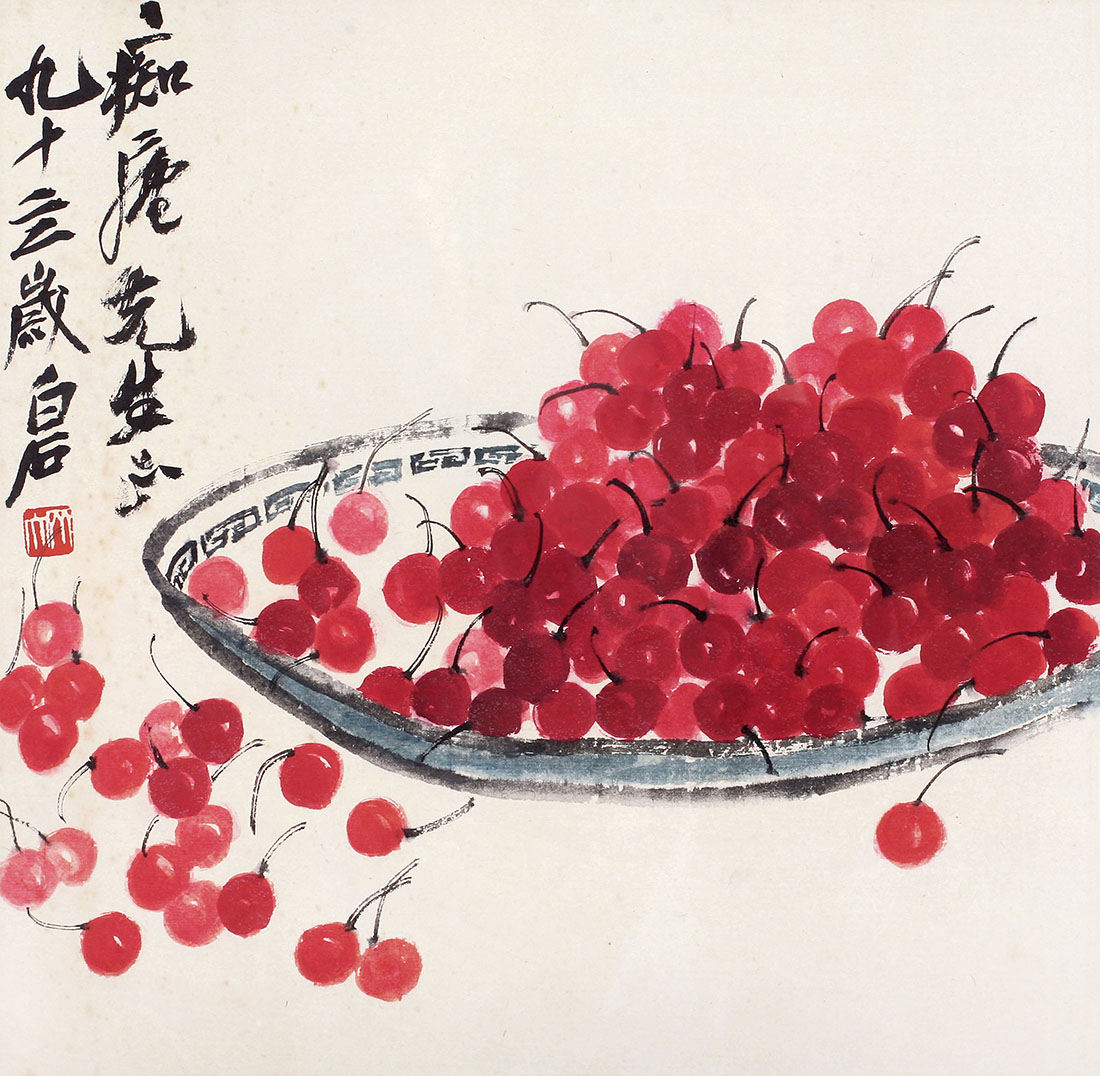 痴庵先生正
九十三歲白石